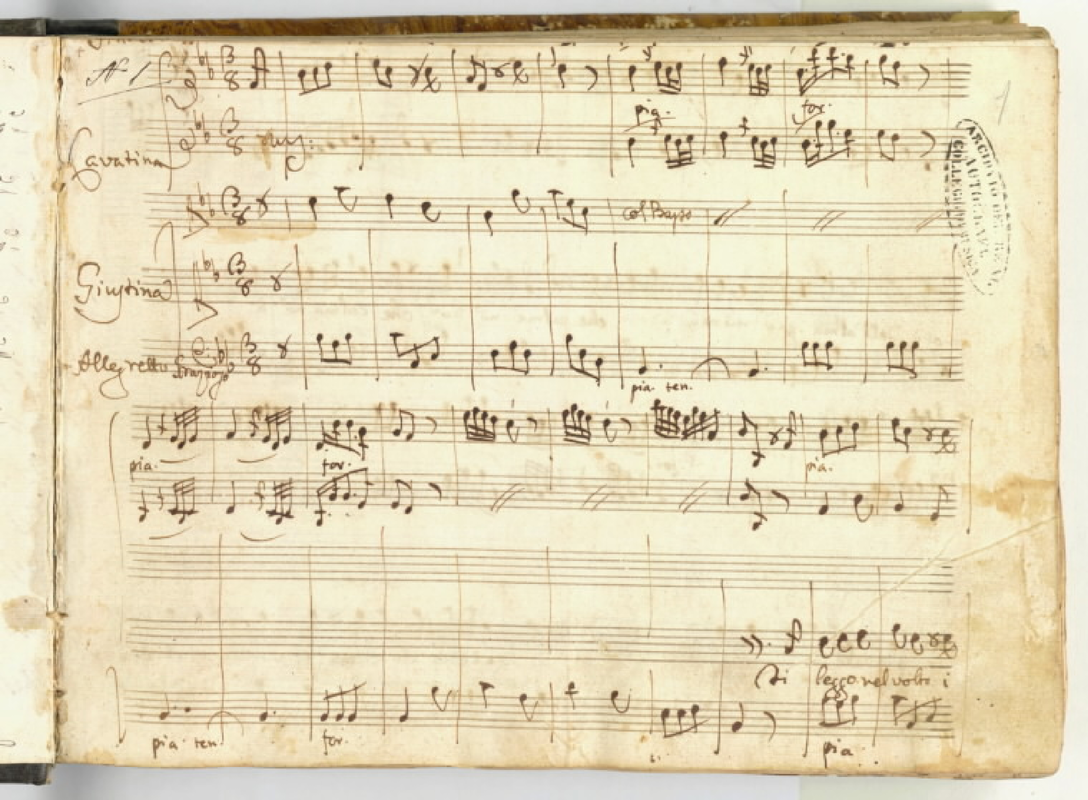 N. 1
3
8
pia.
for.
Cavatina
unis:
col Basso
Giustina
Allegretto
pia. ten.
pia.
for.
pia.
Ti leggo nel volto i
pia. ten.
for.
pia
ARCHIVIO DEL REAL
COLLEGIO DI MUSICA
1